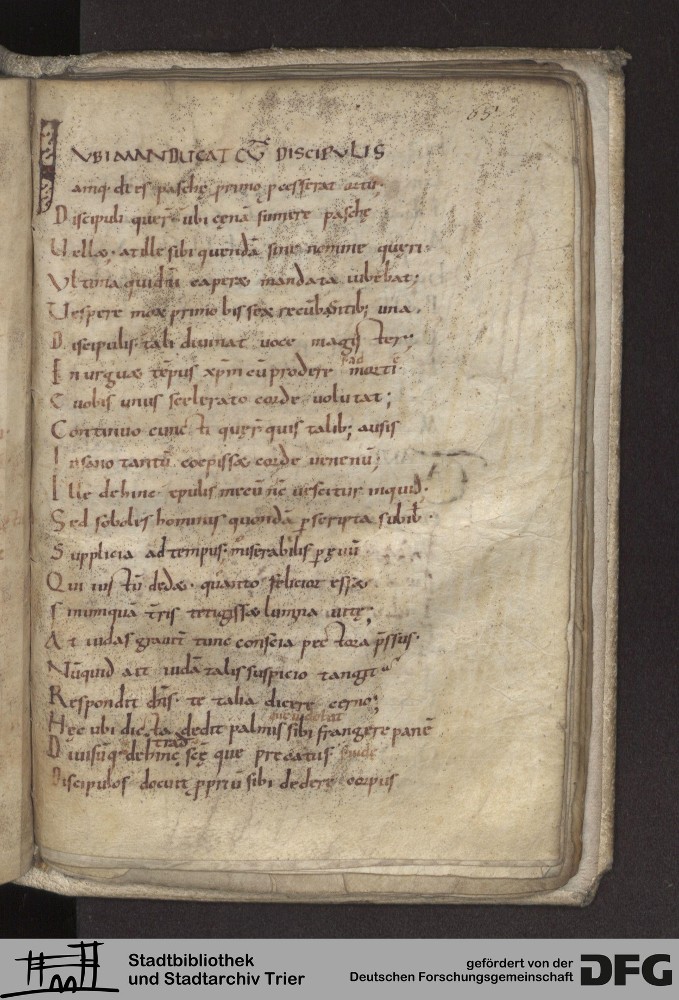 65
UBI MANDUCAT CŨ DISCIPULIS
Iamq; dies paschę primo pcesserat ortu.
Discipuli querť ubi cęnā sumere paschę
Vellæ. at ille sibi quendā sine nomine quęri.
Vltima qui dñi caperæ mandata iubebat;
Vespere mox primo bis sex recūbantib; una.
Discipulis tali diuinat uoce magister;
In urguæ tēpus xp̄m cū prodere morti
E uobis unus scelerato corde uolutat;
Continuo cuncti querť quis talib; ausis
Insano tantū coepissæ corde uenenū;
Ille dehinc epulis mecū nc̄ uescitur inquid.
Sed soboles hominis quondā pscripta subib̄.
Supplicia ad tempus. miserabilis p ęuū
Qui iustū dedæ. quanto felicior essæ
Si numquā tr̄ris tetigissæ lumina uitę;
At iudas grauit̄ tunc conscia pectora p̄ssus.
Nūquid ait iudā talis suspicio tanggit
Respondit dn̄s. te talia dicere cerno;
Hęc ubi dicta dedit palmis sibi frangere panē
Diuisūq; dehinc scę que precatus
Discipulos docuit pprīū sibi dedere corpus
Stadtbibliothek
und Stadtarchiv Trier
gefördert von der
Deutschen Forschungsgemeinschaft
DFG